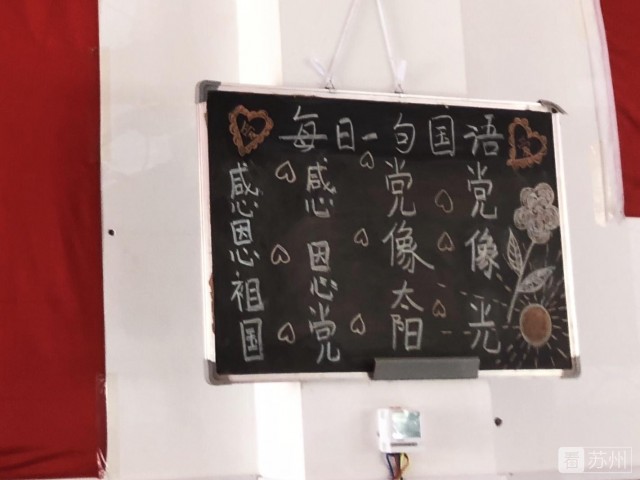 每日一句国语
感恩祖国
感恩党
党像太阳
党像光
看苏州